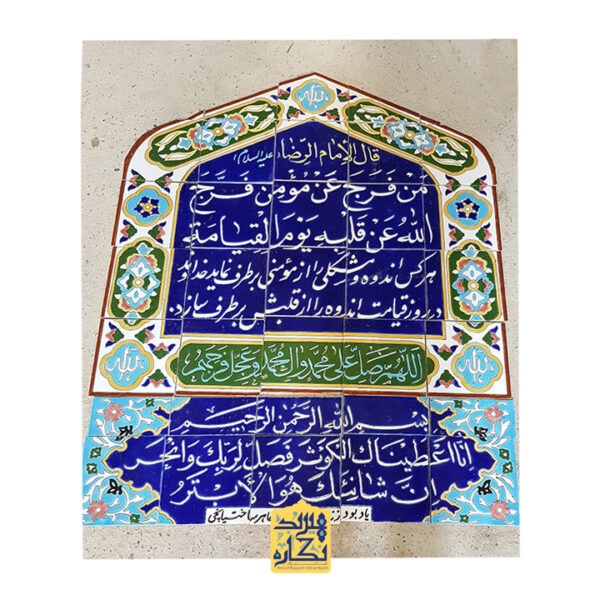 الله
قال الإمام الرضا (علیه السلام)
مَن فَرَّجَ عَن مُؤمِن فَرَّجَ
اللهُ عَن قَلبِهِ یَومَ القِیامَة
هر کس اندوه و مشکلی را از مؤمنی برطرف نماید خداوند
در روز قیامت اندوه را از قلبش برطرف سازد.
الله
الله
اللهم صل علی محمد وال محمد وعجل فرجهم
بسم الله الرحمن الرحیم
انا اعطیناک الکوثر فصل لربک وانحر
ان شانئک هو الابتر
یادبود
هیراد نگاره